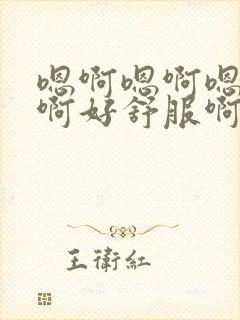 嗯啊嗯啊嗯
啊好舒服啊
王衛紅